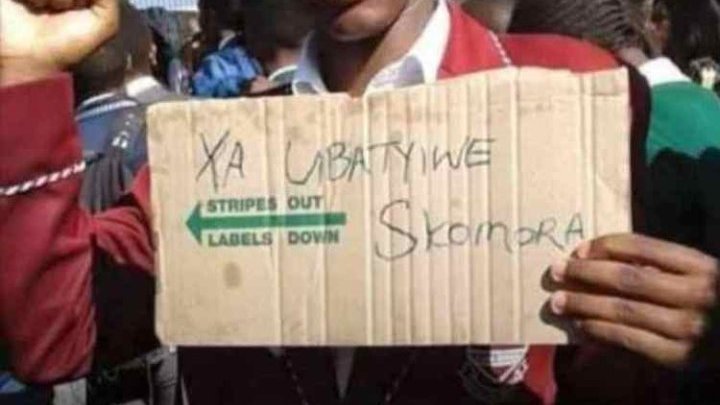 XA UBATYIWE
STRIPES OUT
LABELS DOWN
SKOMORA